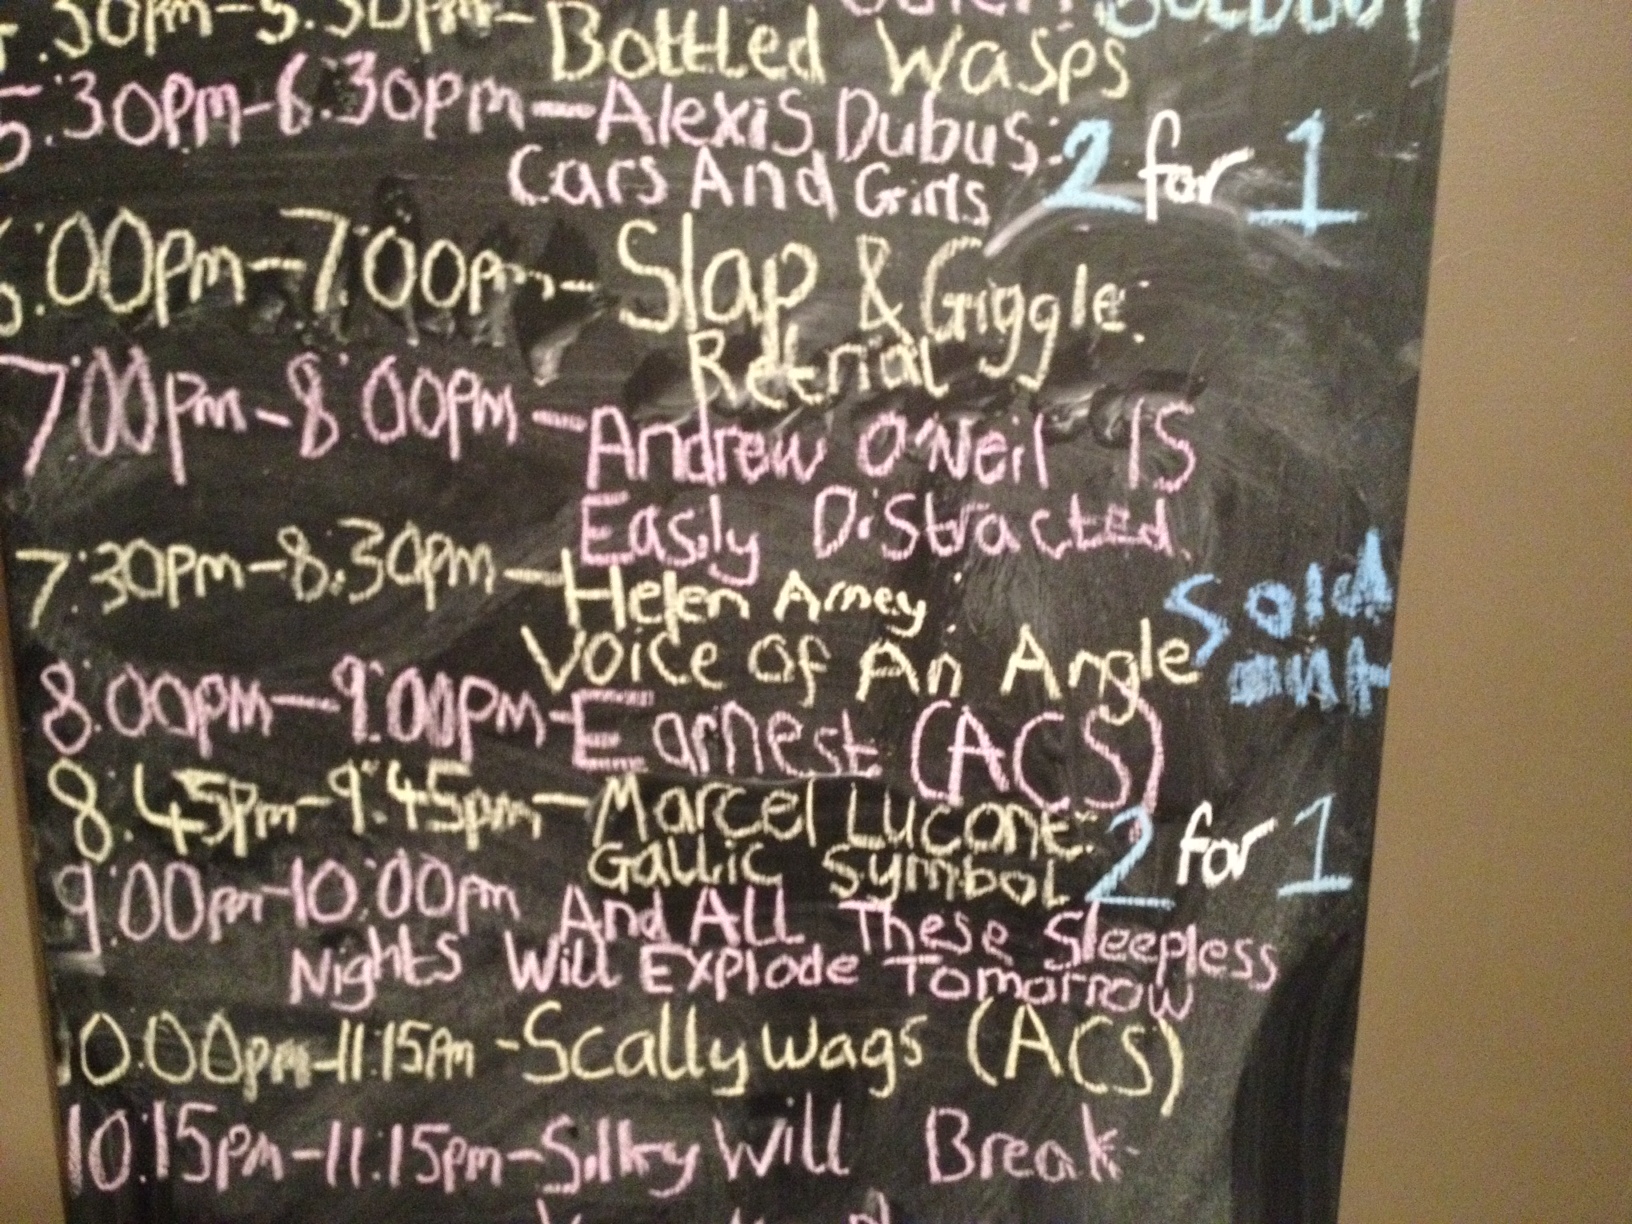 .30pm-5.30pm- Bottled Wasps
5:30pm-6.30pm-Alexis Dubus:
Cars And Girls 2 for 1
6:00pm-7:00pm- Slap & Giggle:
Retrial
7:00pm-8:00pm-Andrew O'Neil IS
Easily Distracted.
7:30pm-8:30pm-Helen Arney
Voice of An Angle Sold out
8:00pm-9:00pm-Earnest (ACS)
8:45pm-9:45pm-Marcel Lucont:
Gallic Symbol 2 for 1
9:00pm-10:00pm And All These Sleepless
Nights Will Explode Tomorrow
10:00pm-11:15pm-Scallywags (ACS)
10:15pm-11:15pm-Silky Will Break